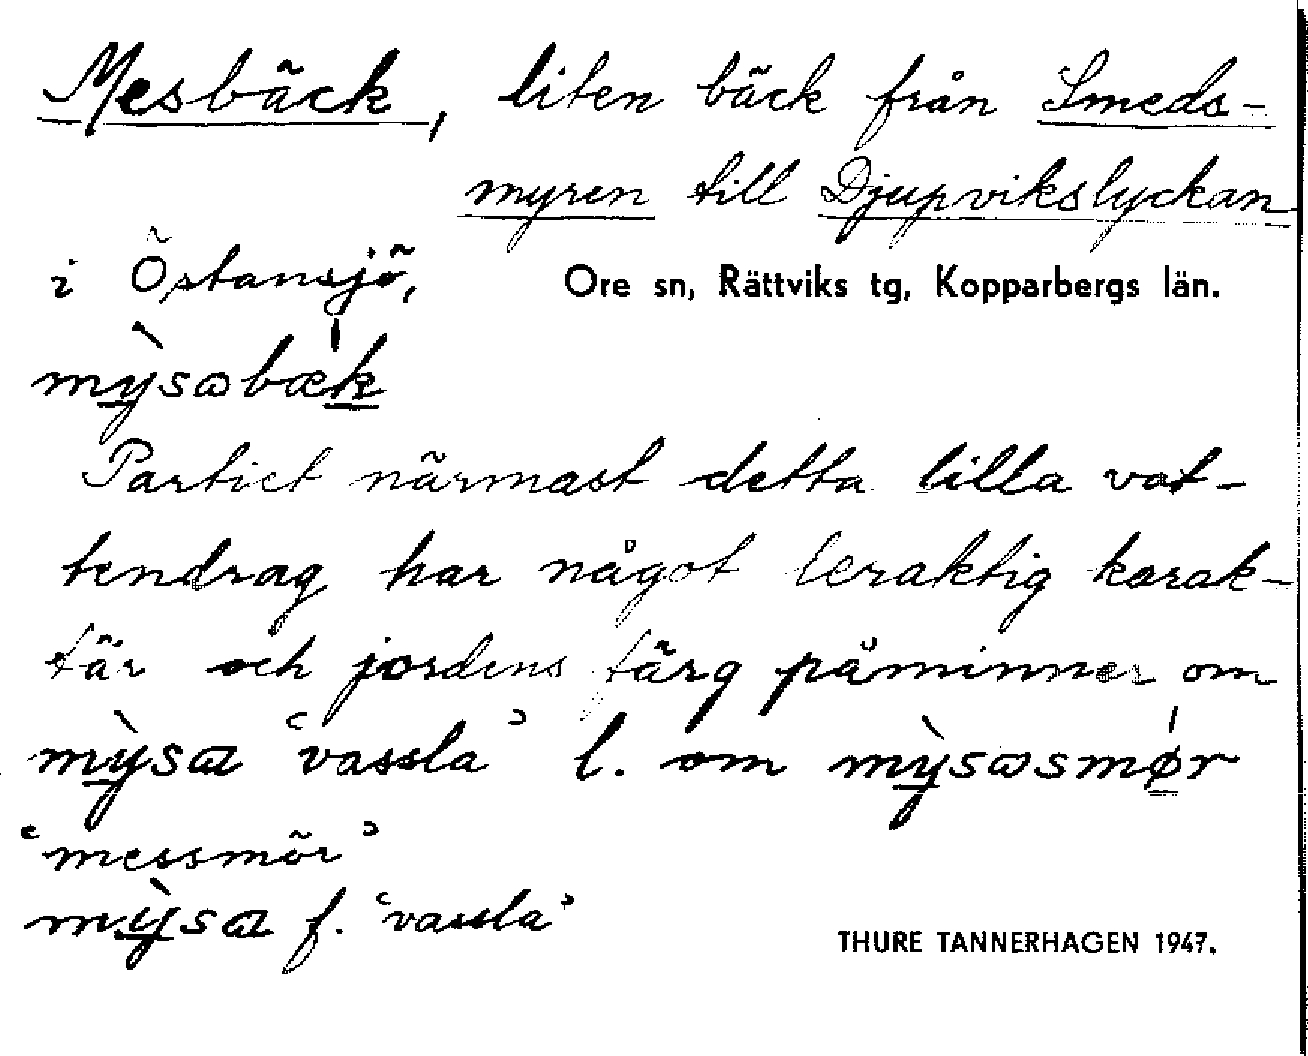 Mesbäck, liten bäck från Smeds-
myren till Djupvikslyckan
i Östansjö, Ore sn, Rättviks tg, Kopparbergs län.
mỳsabæ̀k
Partiet närmast detta lilla vat-
tendrag har något leraktig karak-
tär och jordens färg påminner om
mỳsa ‘vassla’ l. om mỳsasmør
‘messmör’
mỳsa f. ‘vassla’
THURE TANNERHAGEN 1947.